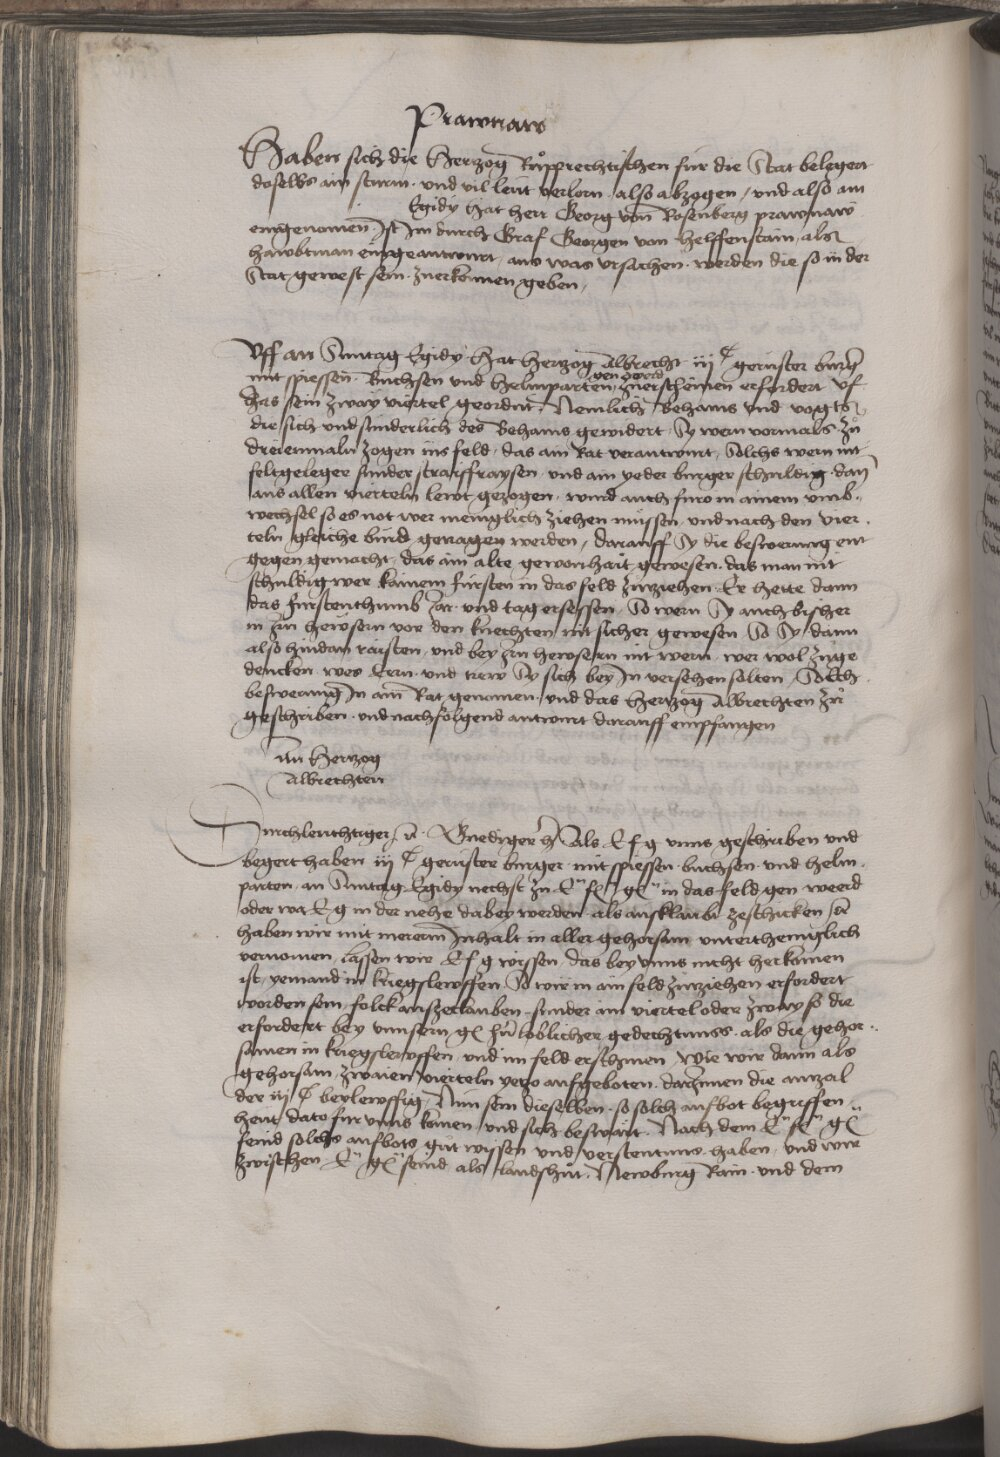 Prawnaw
Haben sich die Hertzog Ruͦpprechtischen für die Stat belegert
doselbs ain sturm. und vil leüt verlorn. also abzogen / und also am
Egidy hat herr Georg von Rosenberg prawnaw
eingenomen. Ist Im durch Graf Georgen von Helffenstain, als
hawbtman eingeantwurt, aus was ursachen. werden die so in der
Stat gewest sein. zuerkennen geben,
Uff an Sunntag Egidy hat hertzog Albrecht iijc gerüster burger
mit spiessen. Buchsen und helmparten, gen werd zuerscheinen erfordert Uf
das sein zway viertel geordnt. Nemlich Behams und vogts
die sich und sunderlich des Behams gewidert, Sy wern vormals zu
dreienmaln zogen ins feld, das ain Rat verantwurt, Solchs wern nit
feltgeleger sunder straiffraysen. und ain yeder burger schuldig. dann
aus allen vierteln lewt gezogen. wurd auch furo in ainem umb,
wechsel so es not wer meniglich ziehen müssen, und nach den vier,
teln gleiche bürd getragen werden, darauff Sy die beswerung ent
gegen gemacht, das ain alte gewonhait gewesen. das man nit
schuldig wer kainem fürsten in das feld zuziehen. Er hette dann
das fürstenthumb Jar. und tag ersessen, So wern Sy auch bisher
in irn hewsern vor den knechten nit sicher gewesen So Sy dann
also hindan raisten, und bey irn hewsern nit wern. wer wol zuge
dencken. wes Eern. und trew Sy sich bey In versehen solten, Solch
beswerung In ain Rat genomen. und das Hertzog Albrechten zu
geschriben. und nachfolgend antwurt darauff empfangen
An Hertzog
Albrechten
Durchleuchtiger, etc. Gnediger h Als E f g unns geschriben und
begert haben iijc gerüster burger. mit spiessen. buchsen. und helm,
parten. an Sunntag Egidy nechst zu E f g in das feld gen weerd
oder wo E g in der nehe dabey werden. als ausklaubt zeschicken etc
haben wir mit mererm Innhalt in aller gehorsam. unterthenigklich
vernomen, lassen wir E f g wissen, das bey unns nicht herkomen
ist, yemand in kriegslewffen So wir in ain feld zuziehen erfordert
worden sein, folck auszeclauben. sunder ain viertel oder zway so die
erfordert bey unnsern g hern loblicher gedechtnuss. als die gehor,
samen in kriegslewffen, und im feld erschinen, Wie wir dann als
gehorsam, zwaien vierteln yetzo aufgeboten. darinnen die anzal
der iijc beylewffig, Nun sein dieselben, so solch aufbot begriffen
heut dato für unns komen. und sich beswärt. Nach dem E f g
feind solchs aufbots gut wissen und verstentnus. haben, und wir
zwischen E g feind, als Landshut. Newburg Rain. und dem